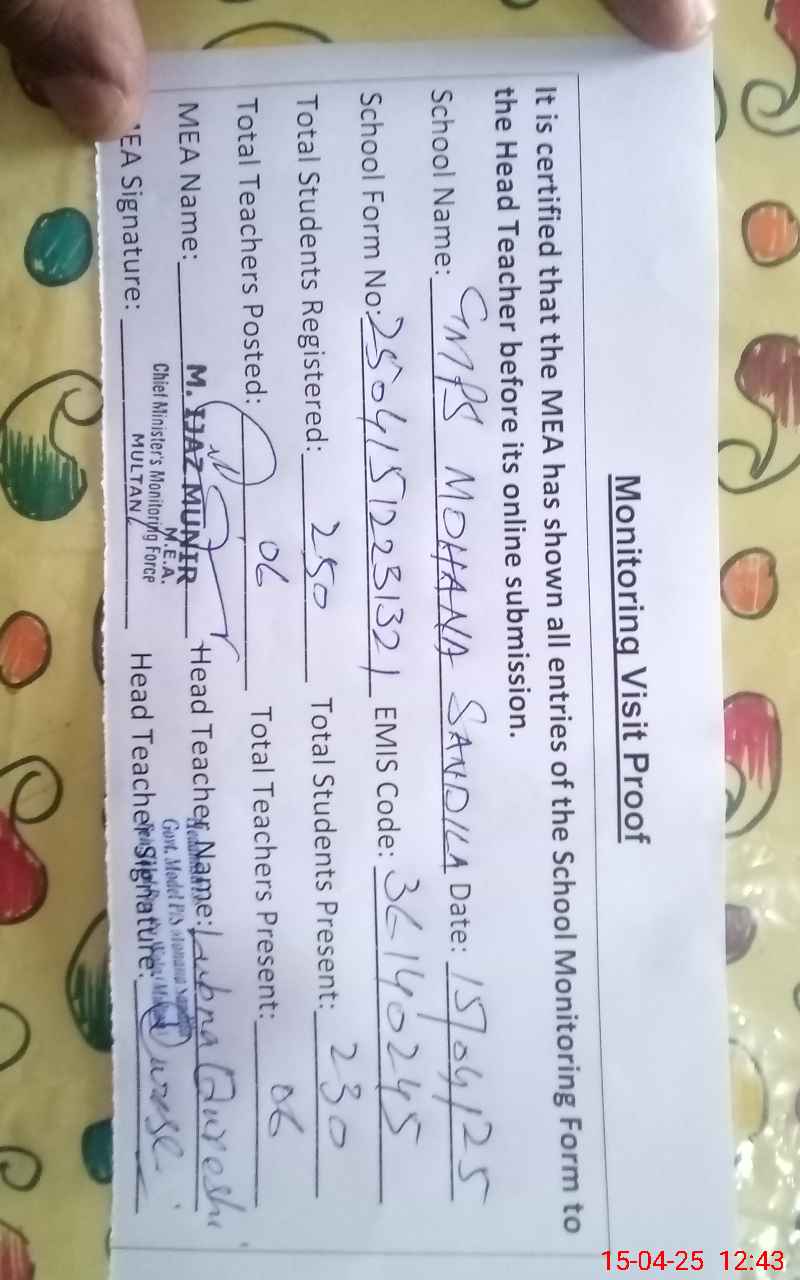 Monitoring Visit Proof
It is certified that the MEA has shown all entries of the School Monitoring Form to
the Head Teacher before its online submission.
School Name: GMPS MOHANA SANDILA Date: 15/04/25
School Form No: 25041512231321 EMIS Code: 36140245
Total Students Registered: 250 Total Students Present: 230
Total Teachers Posted: 06 Total Teachers Present: 06
MEA Name: M. IJAZ MUNIR Head Teacher Name: Lubna Qureshi
M.E.A.
Chief Minister's Monitoring Force
MULTAN
Govt. Model P/S Mohana
EA Signature: Head Teacher Signature: Qureshi
15-04-25 12:43